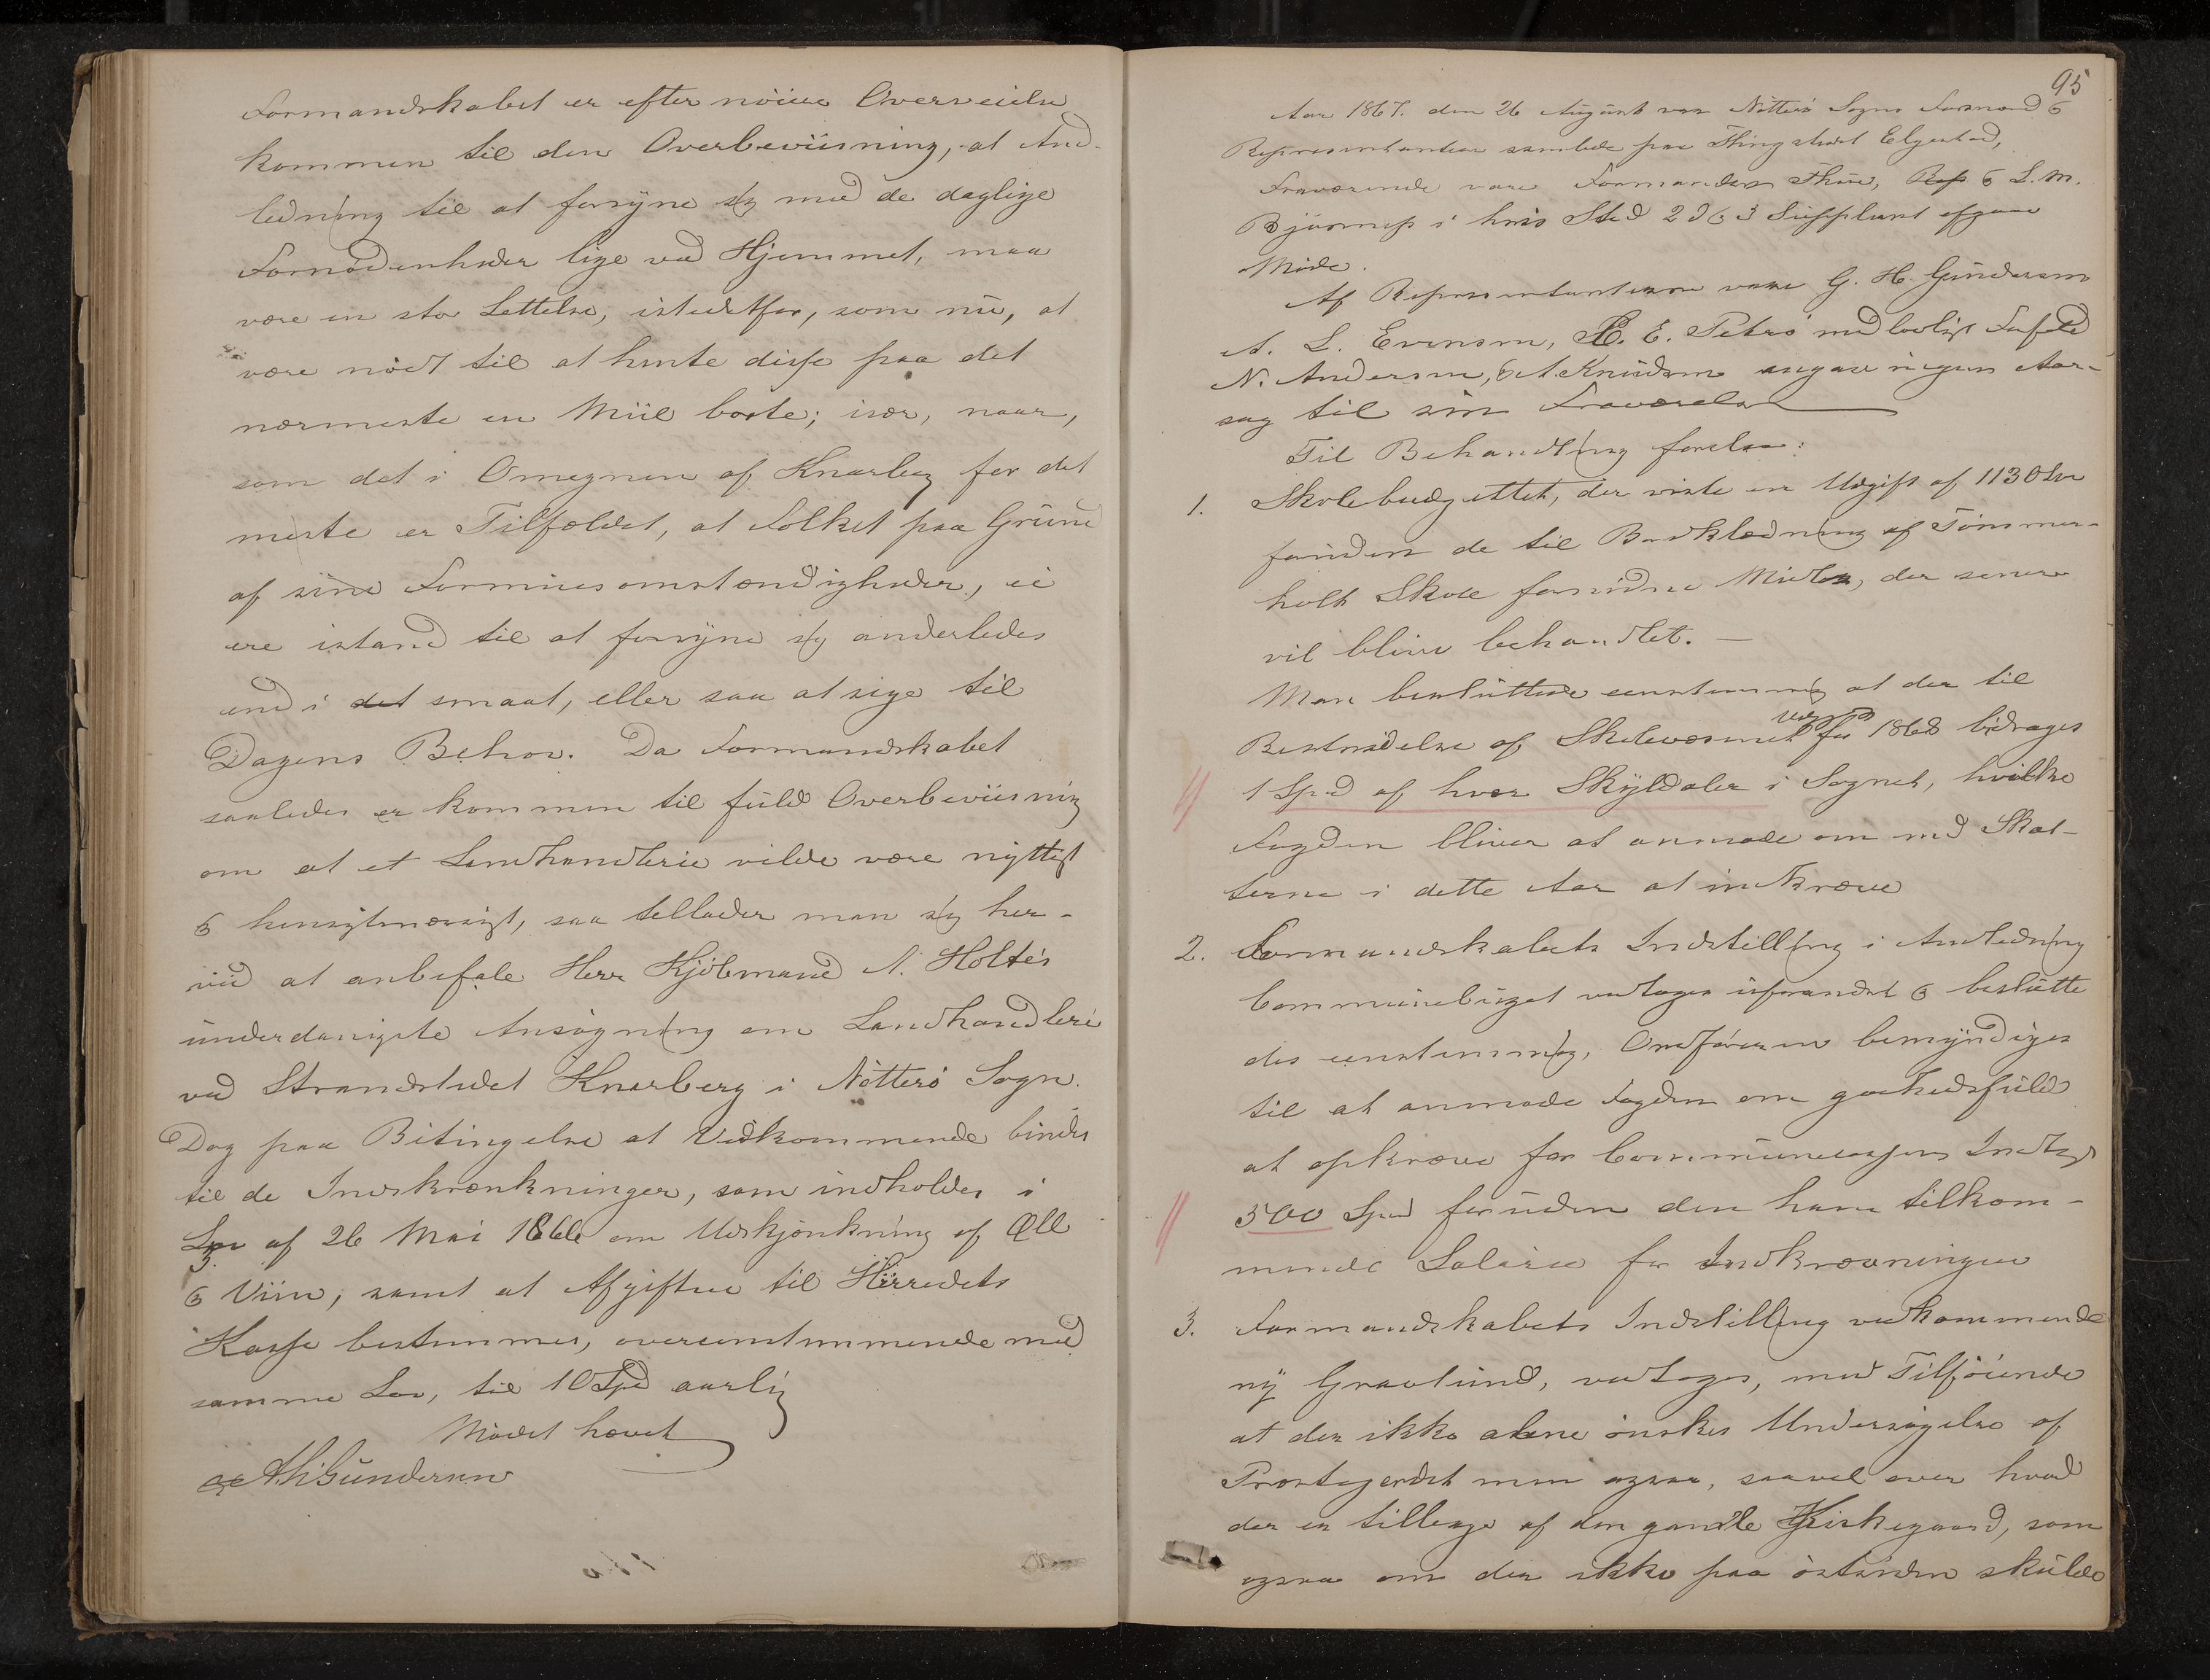 Formandskabet er efter nøiere Overveielse
kommen til den Overbeviisning, at And-
ledning til at forsyne sig med de daglige
Fornødenheder lige ved Hjemmet, maa
være en stor Lettelse, istedetfor, som nu, at
være nødt til at hente disse paa det
nærmeste en Miil borte; især, naar,
som det i Omegnen af Knarberg for det
meste er Tilfældet, at Folket paa Grund
af sine Formuesomstændigheder, ei
ere istand til at forsyne sig anderledes
end i det smaat, eller saa at sige til
Dagens Behov. Da Formandskabet
saaledes er kommen til fuld Overbeviisning
om at et Landhandlerie vilde være nyttigt
& hensigtmæssigt, saa tellader man sig her-
ved at anbefale Herr Kjøbmand A. Holtes
underdanigste Ansøgning om Landhandleri
ved Strandstedet Knarberg i Nøtterø Sogn.
Dog paa Bitingelse at Vedkommende bindes
til de Indskrænkninger, som indholdes i
Lov af 26 Mai 1866 om Udskjænkning af Øll
& Viin, samt at Afgiften til Herredets
Kasse bestemmes, overeenstemmende med
samme Lov, til 10 Spd aarlig
Mødet hævet
A H Gundersen
95
Aar 1867. den 26 August var Nøtterø Sogns Formænd &
Representanter samlede paa Thingstedet Elgestad,
Fraværende vare Formanden Thue, Rep & L. M.
Bjønness i hvis Sted 2d & 3 Supplent afgave
Møde.
Af Representanterne vare G. H. Gundersen
A. L. Evensen, P. E. Petersø med lovligt Forfald
N. Andersen, & A. Knudsen angave ingen Aar-
sag til sin Fraværelse
Til Behandling forelaa:
1. Skolebudgettet, der viste en Udgift af 1130 Spd
foruden de til Bordklædning af Tømmer-
holt Skole fornødne Midler, der senere
vil blive behandlet. —
Man besluttede eenstemmig at der til
Bestridelse af Skolevæsenets Udgift for 1868 bidrages
1 Spd af hver Skylddaler i Sognet, hvilke
Fogden bliver at anmode om med Skat-
terne i dette Aar at indkræve
2. Formandskabets Indstilling i Andledning
Communebuget vedtoges uforandret & beslutte
des eenstemmig, Ordføreren bemyndiges
til at anmode Fogden om godhedsfuld
at opkræve for Communecassens Indtægt
500 Spd foruden den ham tilkom-
mende Salarie for Indkrævningen
3. Formandskabets Indstilling vedkommende
ny Gravlund, vedtoges, med Tilføiende
at der ikke alene ønskes Undersøgelse af
Præstegjerdet men ogsaa, saavel over hvad
der er tillægs af den gamle Kirkegaard, som
ogsaa om der ikke paa østsiden skulde